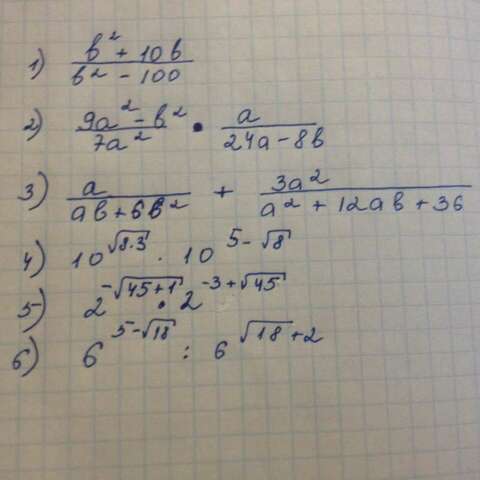 1) (b² + 10b)/(b² - 100)
2) (9a² - b²)/(7a²) • a/(24a - 8b)
3) a/(ab + 6b²) + 3a²/(a² + 12ab + 36)
4) 10^(√(8·3)) · 10^(5-√8)
5) 2^(-√(45+1)) • 2^(-3+√45)
6) 6^(5-√18) : 6^(√18+2)